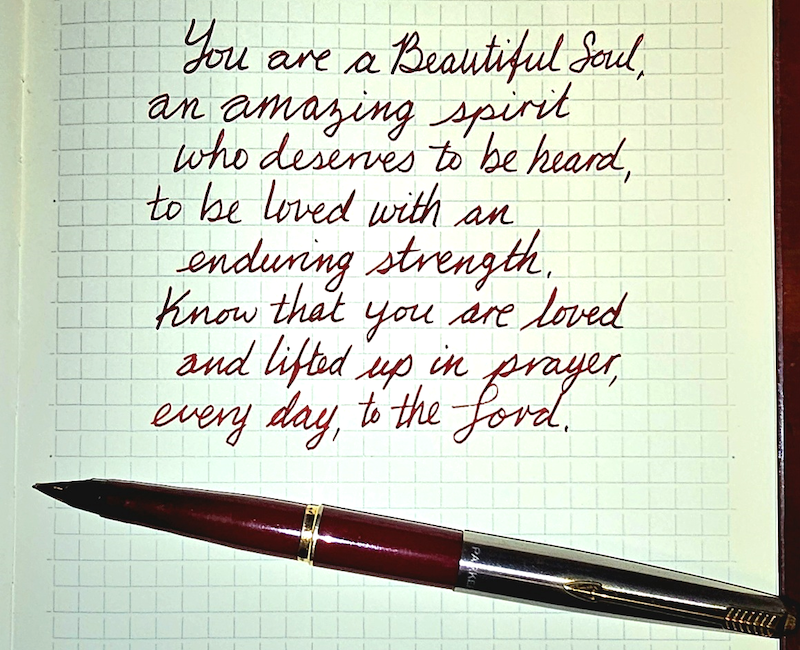 You are a Beautiful Soul,
an amazing spirit
who deserves to be heard,
to be loved with an
enduring strength.
Know that you are loved
and lifted up in prayer,
every day, to the Lord.
PARKE